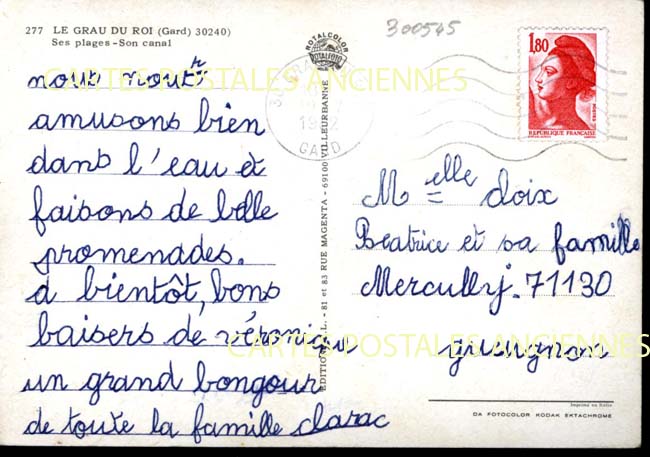 277 LE GRAU DU ROI (Gard) 30240)
Ses plages - Son canal
nous nous
amusons bien
dans l'eau et
faisons de belle
promenades.
a bientôt, bons
baisers de véronique
un grand bongour
de toute la famille clarac
ROTALCOLOR
ROTALFOTO
EDITIONS S.L. - 81 et 83 RUE MAGENTA - 69100 VILLEURBANNE
300545
GARD
1,80
REPUBLIQUE FRANÇAISE
Melle doix
Beatrice et sa famille
Mercully. 71130
gueugnon
Imprimé en Italie
DA FOTOCOLOR KODAK EKTACHROME
CARTES POSTALES ANCIENNES
CARTES POSTALES ANCIENNES